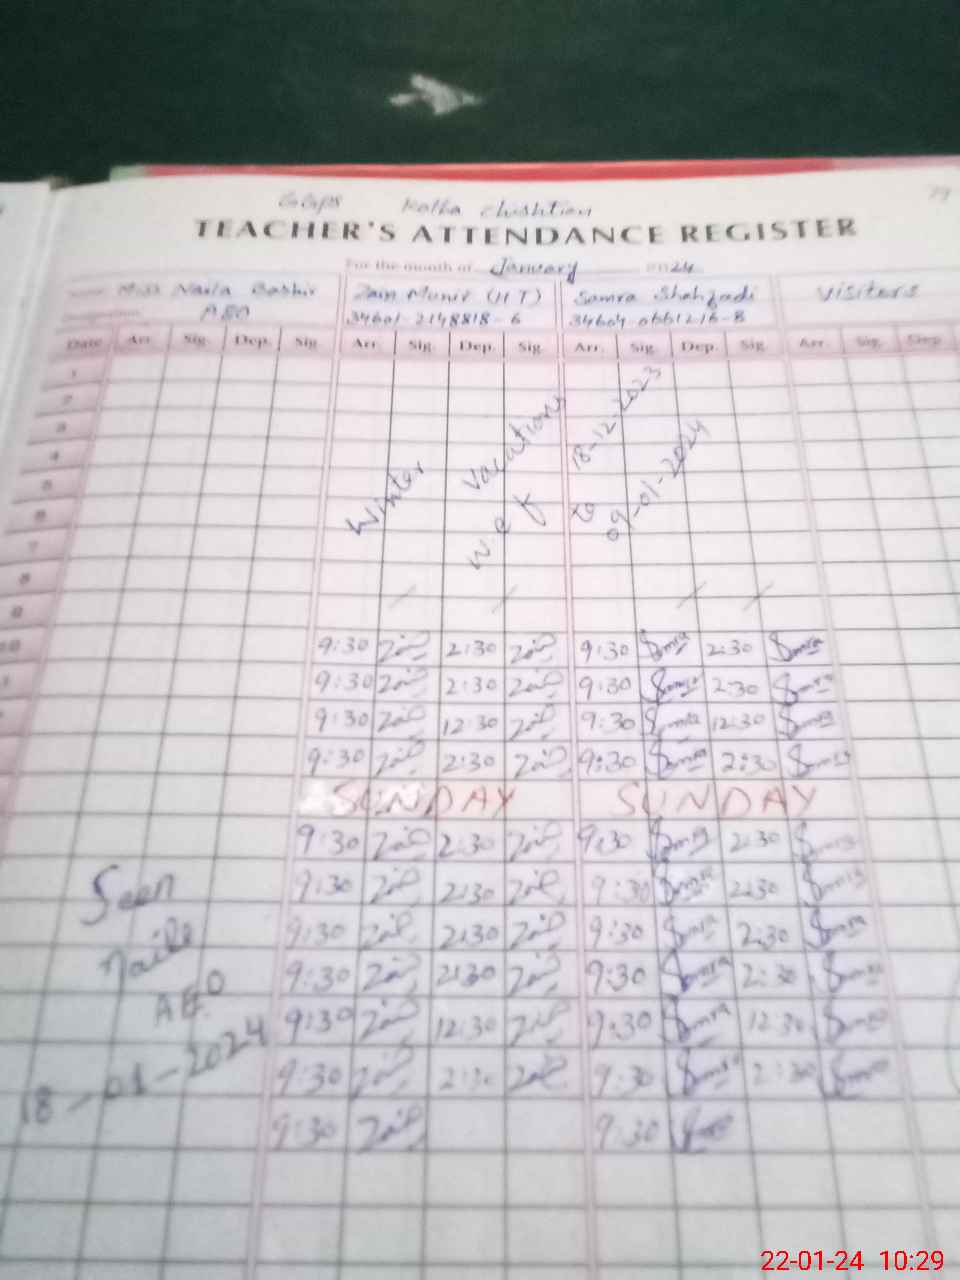 GGPS Kotla Chishtian
TEACHER'S ATTENDANCE REGISTER
For the month of January 2024
Miss Naila Bashir Zain Munir (HT) Samra Shahzadi Visitors
AEO 34601-2148818-6 34604-0661216-8
Date Arr. Sig. Dep. Sig. Arr. Sig. Dep. Sig. Arr. Sig. Dep. Sig. Arr. Sig. Dep.
1
2
3
4
5
6
7
8
9
Winter Vacations
w.e.f 18-12-2023
to 09-01-2024
10 9:30 2:30 9:30 Samra 2:30 Samra
9:30 2:30 9:30 Samra 2:30 Samra
9:30 12:30 9:30 Samra 12:30 Samra
9:30 2:30 9:30 Samra 2:30 Samra
SUNDAY SUNDAY
9:30 2:30 9:30 Samra 2:30 Samra
9:30 2:30 9:30 Samra 2:30 Samra
9:30 2:30 9:30 Samra 2:30 Samra
9:30 2:30 9:30 Samra 2:30 Samra
9:30 12:30 9:30 Samra 12:30 Samra
9:30 2:30 9:30 Samra 2:30 Samra
9:30 9:30
Seen
Naila
AEO
18-01-2024
22-01-24 10:29